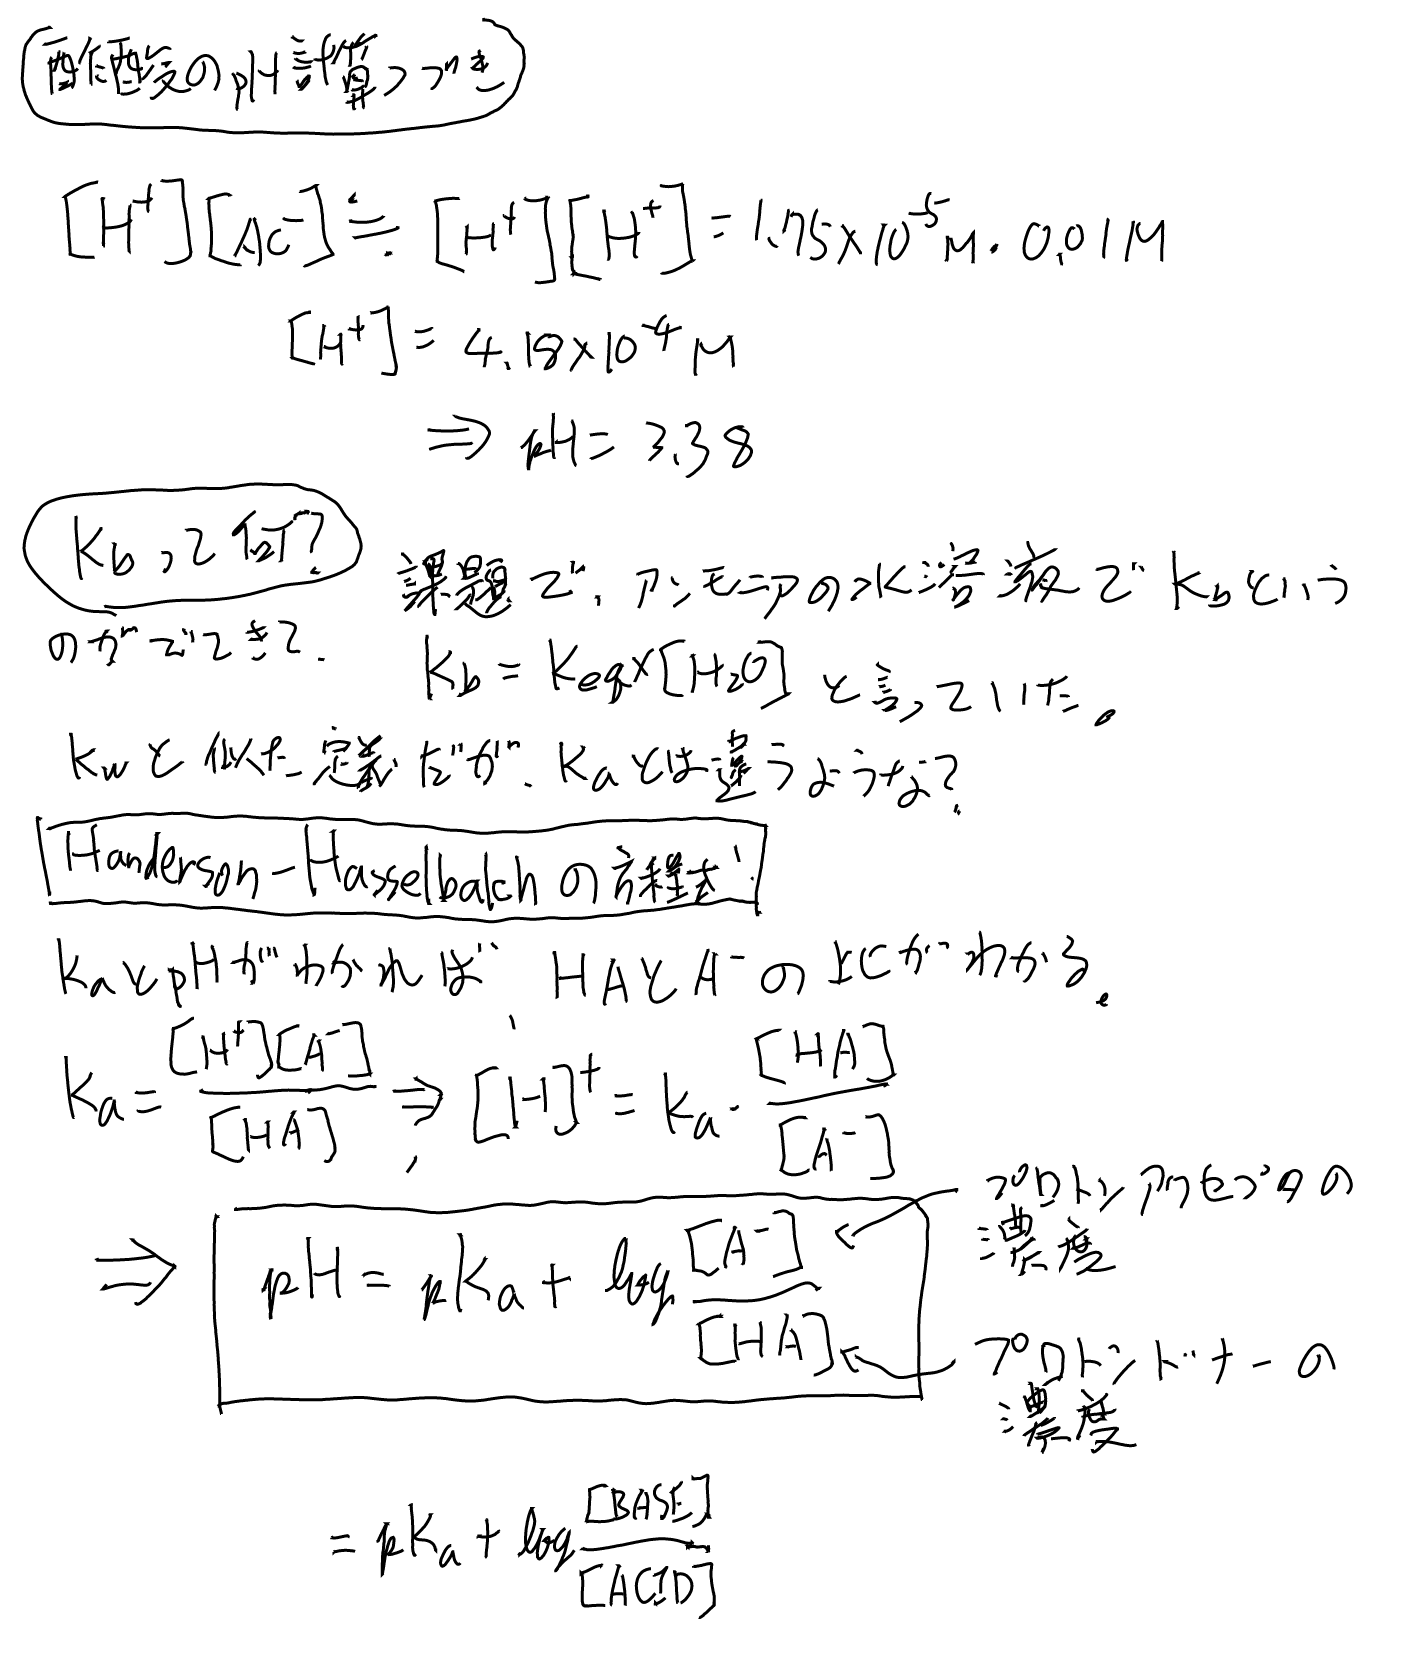 酢酸のpH計算つづき
[H⁺][AC⁻]≒[H⁺][H⁺]=1.75×10⁻⁵M・0.01M
[H⁺]=4.18×10⁻⁴M
⇒ pH=3.38
Kbって何?
課題で、アンモニアの水溶液でKbという
のがでてきて、
Kb=Keq×[H₂O] と言っていた。
Kwと似た定義だが、Kaとは違うような?
Handerson-Hasselbalchの方程式
KaとpHがわかれば HAとA⁻の比がわかる。
Ka=[H⁺][A⁻]/[HA] ⇒ [H]⁺=Ka・[HA]/[A⁻]
⇒ pH=pKa+log[A⁻]/[HA]
プロトンアクセプタの
濃度
プロトンドナーの
濃度
=pKa+log[BASE]/[ACID]